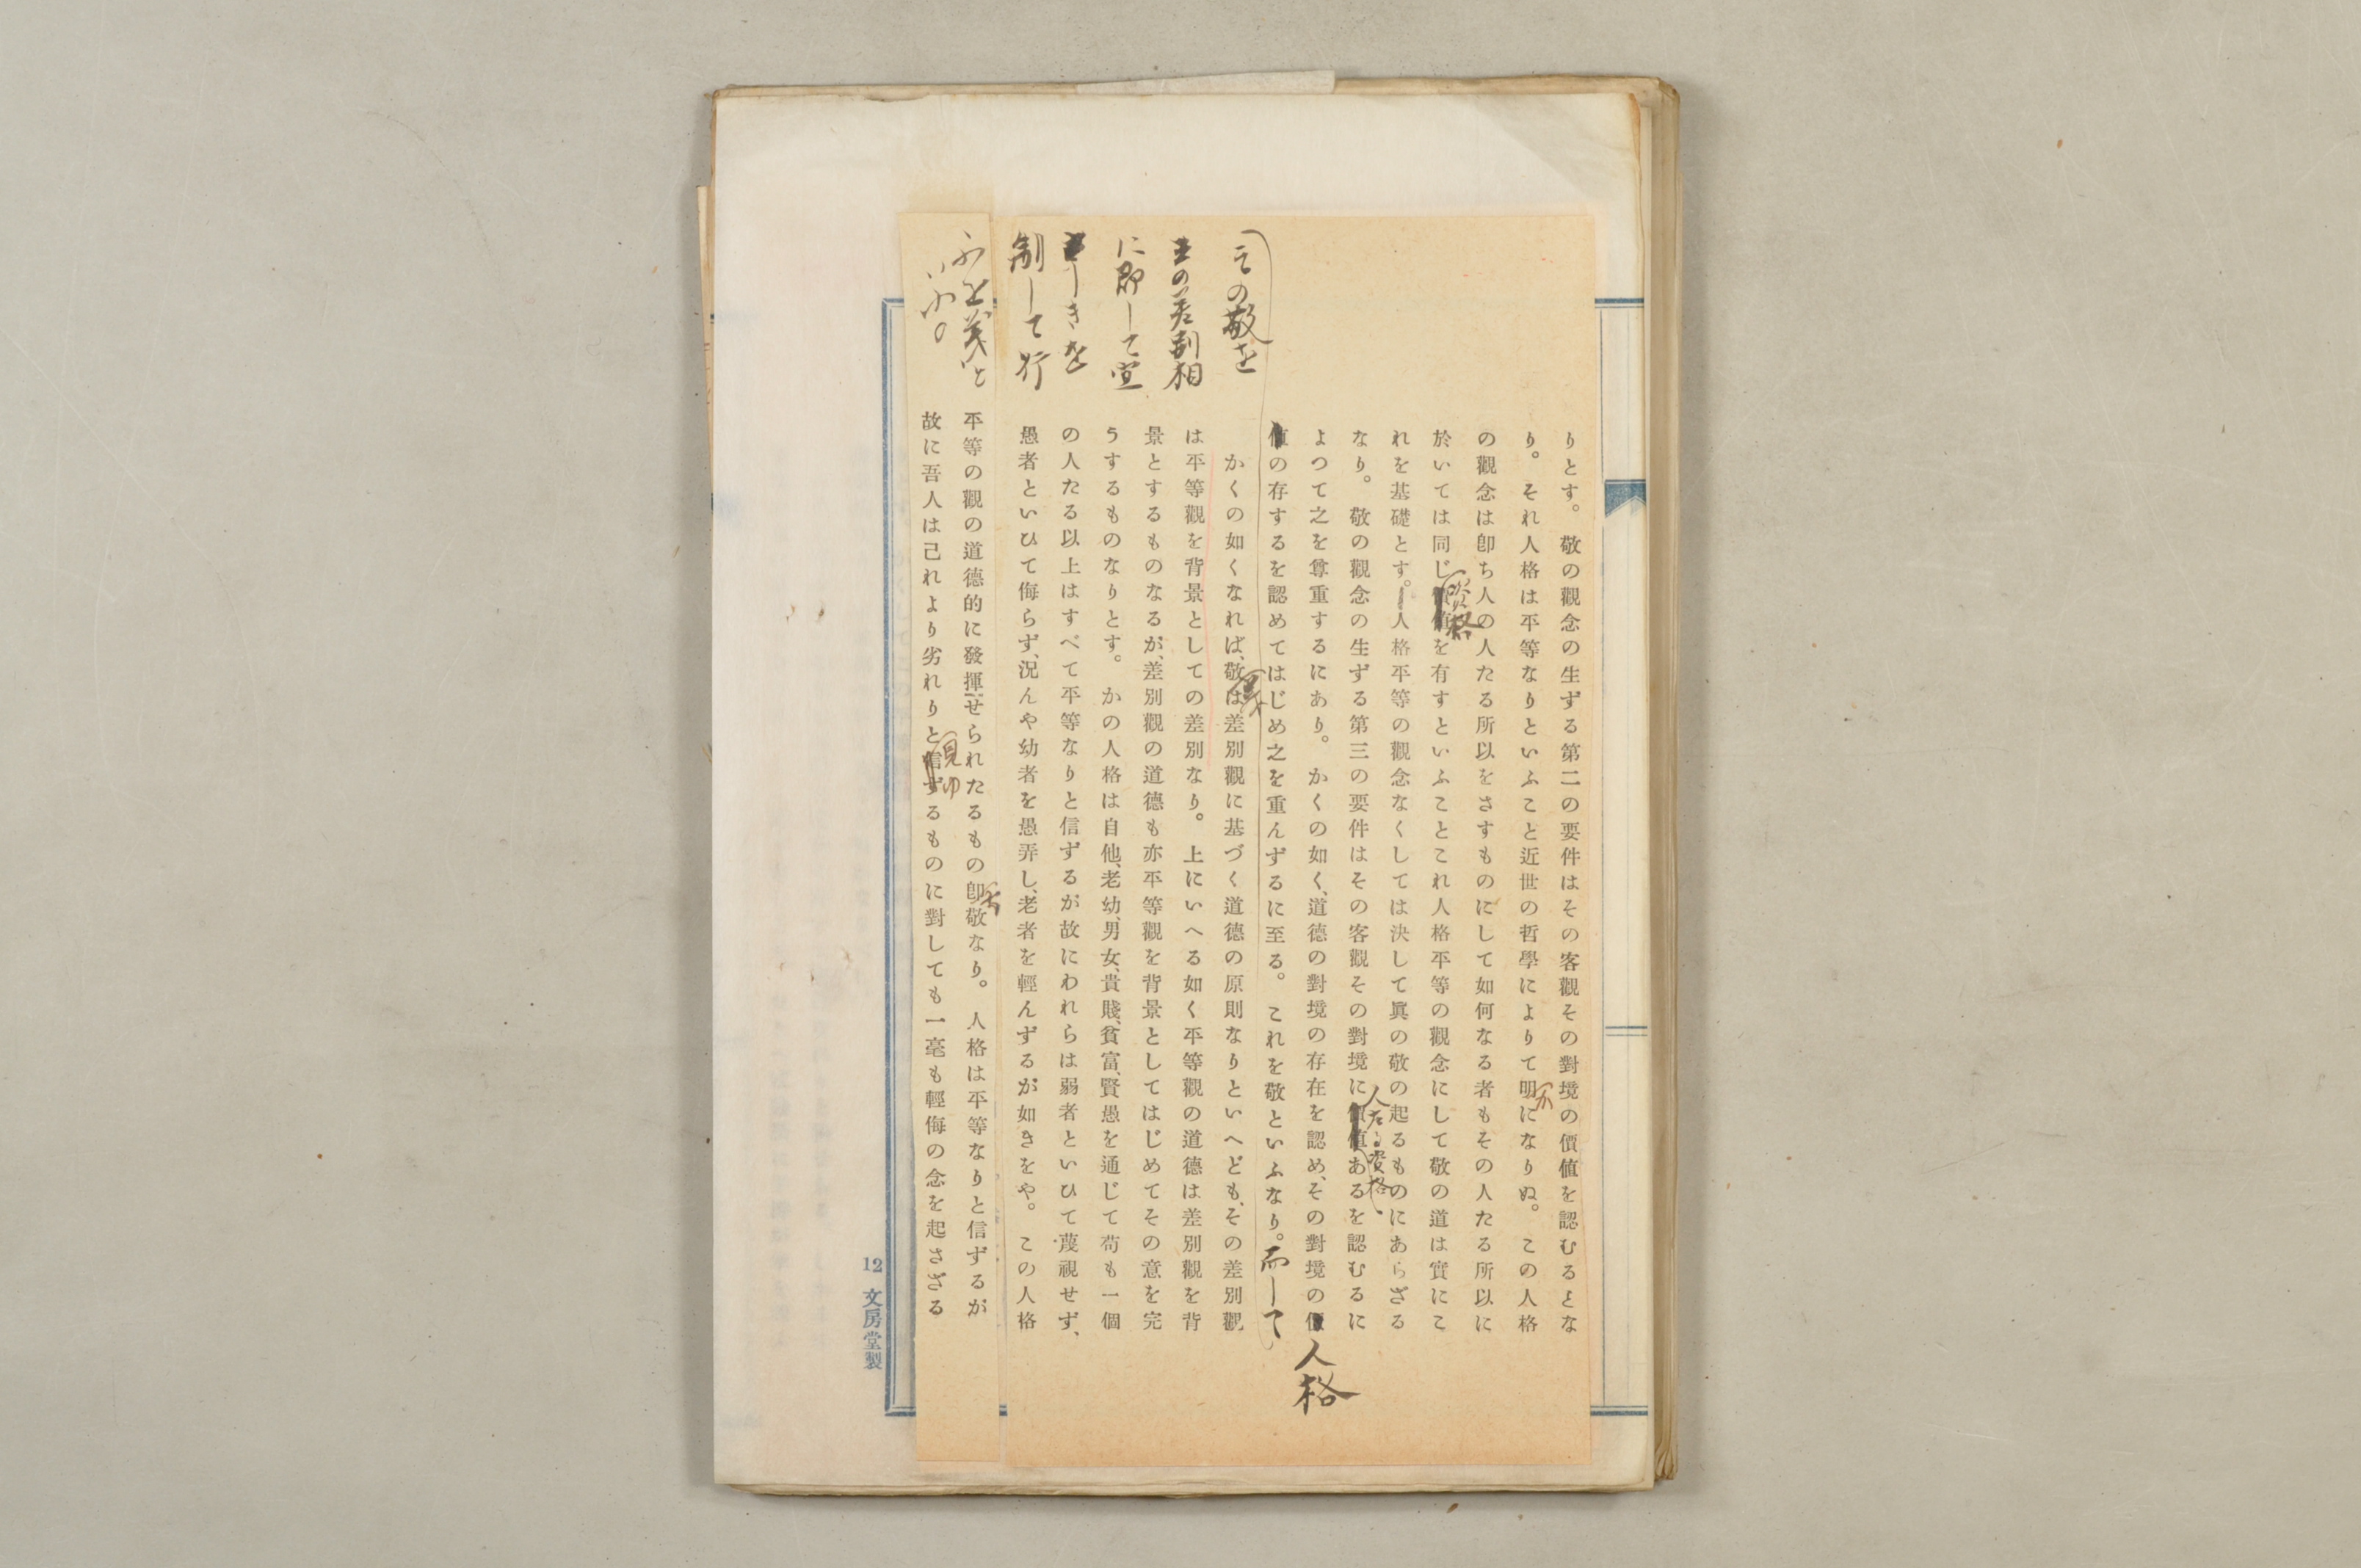 りとす。敬の觀念の生ずる第二の要件はその客觀その對境の價値を認むるとな
り。それ人格は平等なりといふこと近世の哲學によりて明になりぬ。この人格
か
の觀念は卽ち人の人たる所以をさすものにして如何なる者もその人たる所以に
於いては同じ價値を有すといふことこれ人格平等の觀念にして敬の道は實にこ
資格
れを基礎とす。人格平等の觀念なくしては決して眞の敬の起るものにあらざる
なり。敬の觀念の生ずる第三の要件はその客觀その對境に價値あるを認むるに
人たる資格
よつて之を尊重するにあり。かくの如く、道德の對境の存在を認め、その對境の價
人格
値の存するを認めてはじめ之を重んずるに至る。これを敬といふなり。
而して
その敬を
かくの如くなれば、敬は差別觀に基づく道德の原則なりといへども、その差別觀
は平等觀を背景としての差別なり。上にいへる如く平等觀の道德は差別觀を背
の差別相
景とするものなるが、差別觀の道德も亦平等觀を背景としてはじめてその意を完
に卽して宜
うするものなりとす。かの人格は自他、老幼、男女、貴賤、貧富、賢愚を通じて苟も一個
しきを
の人たる以上はすべて平等なりと信ずるが故にわれらは弱者といひて蔑視せず、
制して行
愚者といひて侮らず、況んや幼者を愚弄し、老者を輕んずるが如きをや。この人格
ふを義と
平等の觀の道德的に發揮せられたるもの卽敬なり。人格は平等なりと信ずるが
ち
いふ。
故に吾人は己れより劣れりと信ずるものに對しても一毫も輕侮の念を起さざる
見ゆ
12 文房堂製